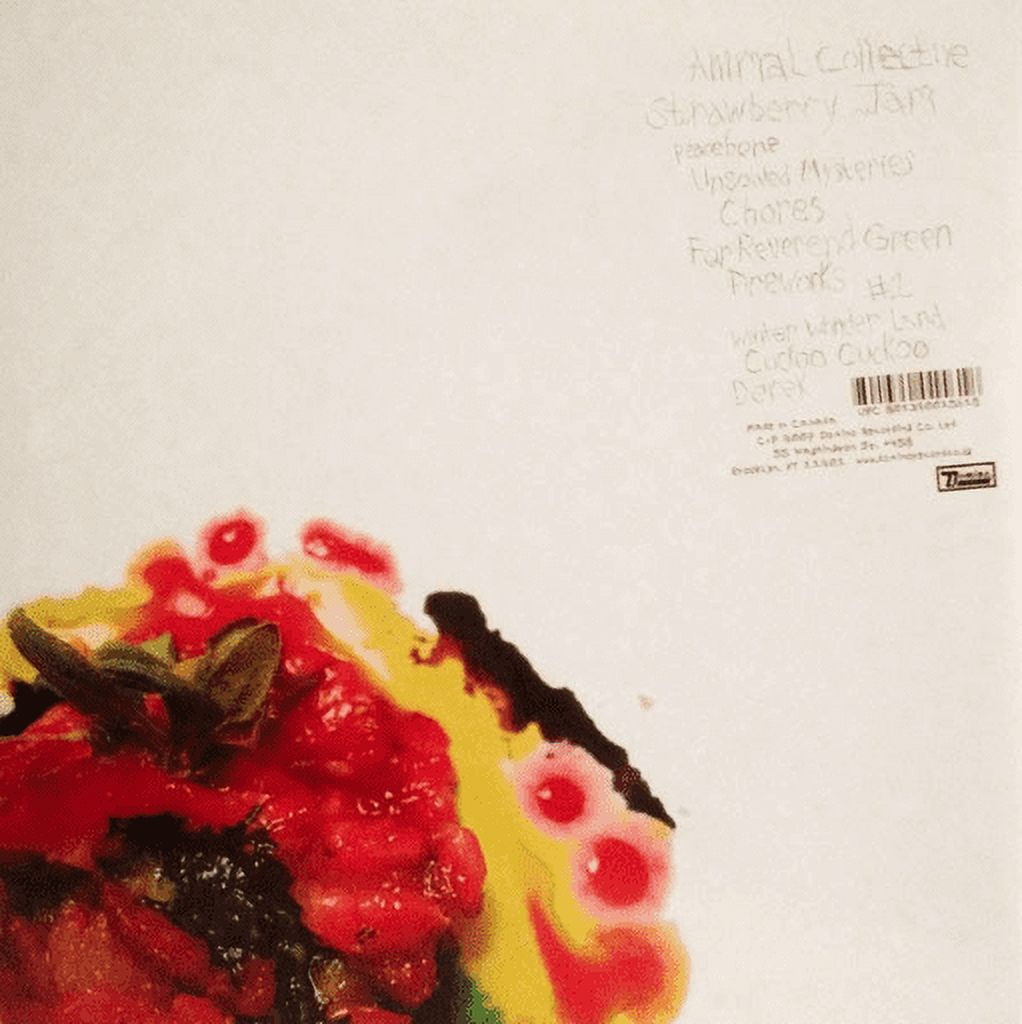 Animal Collective
Strawberry Jam
Peacebone
Unsolved Mysteries
Chores
For Reverend Green
Fireworks #2
Winter Wonder Land
Cuckoo Cuckoo
Derek
Made in Canada
C+P 2007 Domino Recording Co. Ltd
55 Washington St. #458
Brooklyn, NY 11201
Domino